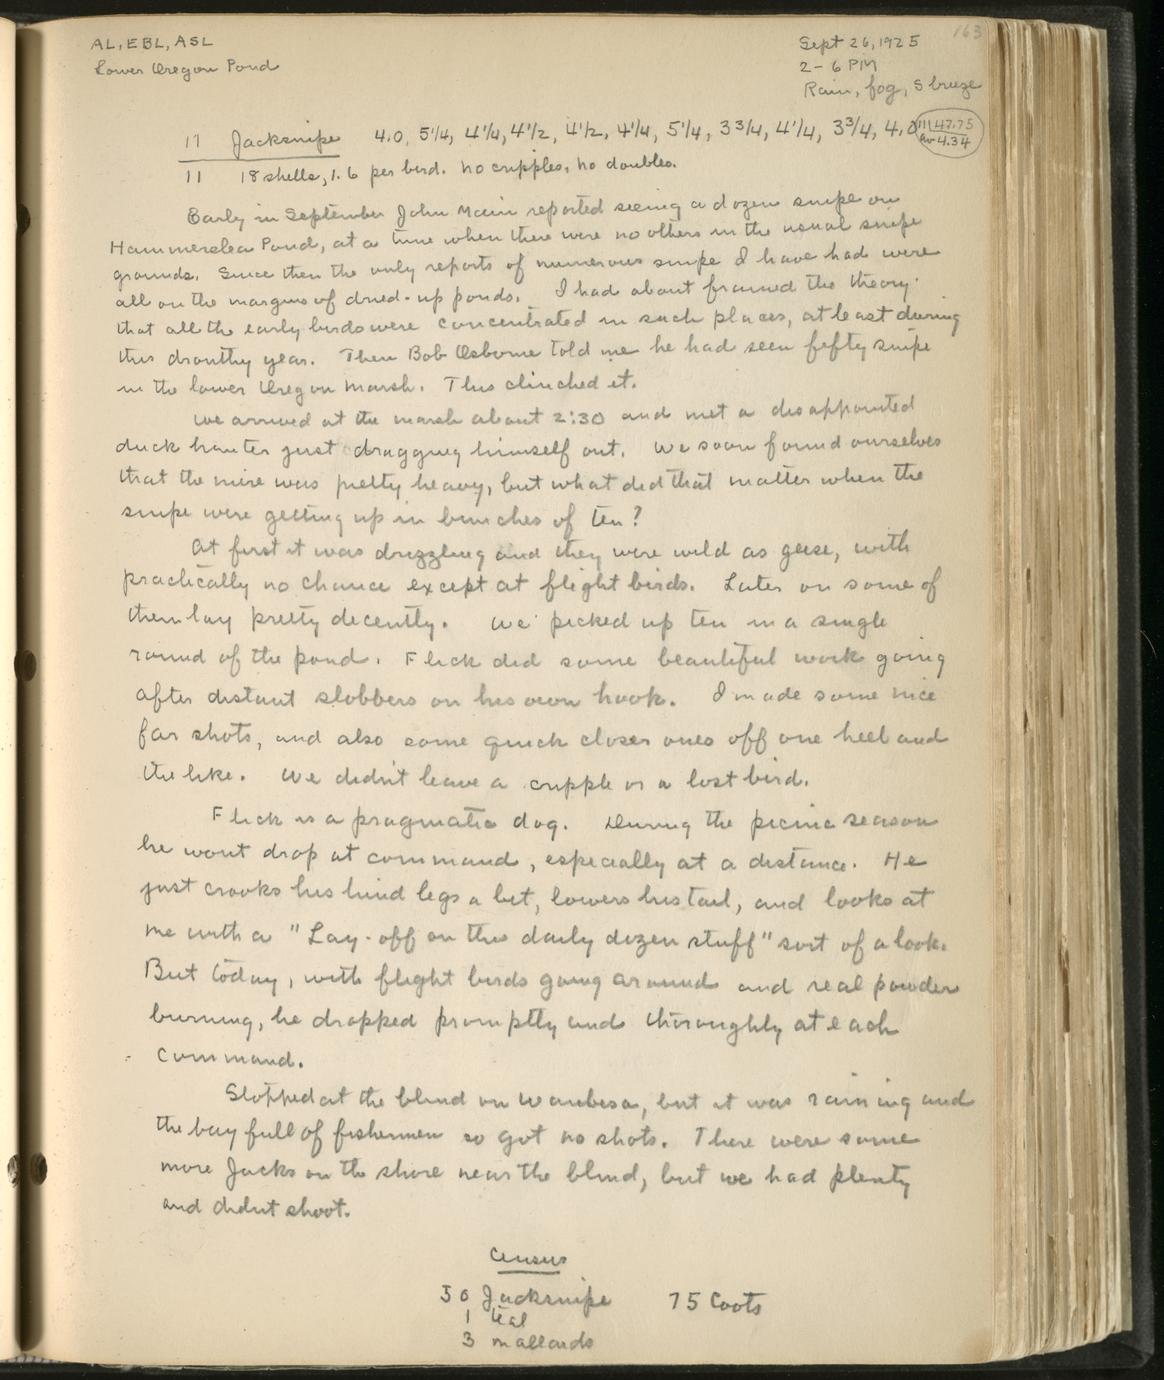 163
AL, EBL, ASL
Lower Oregon Pond
Sept 26, 1925
2 - 6 PM
Rain, fog, S breeze
11 Jacksnipe 4.0, 5 1/4, 4 1/4, 4 1/2, 4 1/2, 4 1/4, 5 1/4, 3 3/4, 4 1/4, 3 3/4, 4.0
11|47.75
Av 4.34
11 18 shells, 1.6 per bird. No cripples, no doubles.
Early in September John Main reported seeing a dozen snipe on
Hammerslea Pond, at a time when there were no others in the usual snipe
grounds. Since then the only reports of numerous snipe I have had were
all on the margins of dried-up ponds. I had about framed the theory
that all the early birds were concentrated in such places, at least during
this drouthy year. Then Bob Osborne told me he had seen fifty snipe
in the lower Oregon Marsh. This clinched it.
We arrived at the marsh about 2:30 and met a disappointed
duck hunter just dragging himself out. We soon found ourselves
that the mire was pretty heavy, but what did that matter when the
snipe were getting up in bunches of ten?
At first it was drizzling and they were wild as geese, with
practically no chance except at flight birds. Later on some of
them lay pretty decently. We picked up ten in a single
round of the pond. Flick did some beautiful work going
after distant slobbers on his own hook. I made some nice
far shots, and also some quick closer ones off one heel and
the like. We didn't leave a cripple or a lost bird.
Flick is a pragmatic dog. During the picnic season
he wont drop at command, especially at a distance. He
just crooks his hind legs a bit, lowers his tail, and looks at
me with a "Lay-off on this daily dozen stuff" sort of a look.
But today, with flight birds going around and real powder
burning, he dropped promptly and thoroughly at each
command.
Stopped at the blind on Waubesa, but it was raining and
the bay full of fishermen so got no shots. There were some
more Jacks on the shore near the blind, but we had plenty
and didnt shoot.
Census
50 Jacksnipe 75 Coots
1 teal
3 mallards